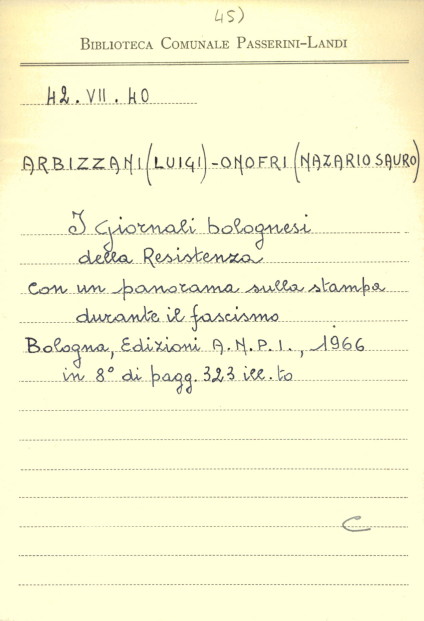 45)
BIBLIOTECA COMUNALE PASSERINI-LANDI
42.VII.40
ARBIZZANI (LUIGI) - ONOFRI (NAZARIO SAURO)
I Giornali bolognesi
della Resistenza
con un panorama sulla stampa
durante il fascismo
Bologna, Edizioni A.N.P.I., 1966
in 8° di pagg. 323 ill.to
C